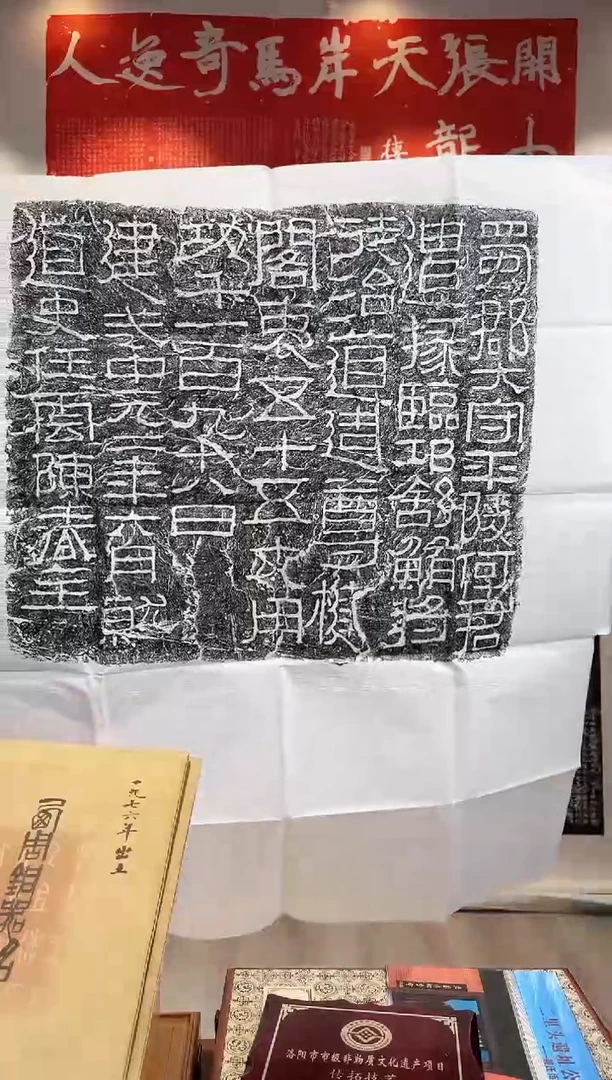 開張天岸馬奇逸人
龍
蜀郡大守平陵何君
遣掾臨邛舒鮪將
徒治道造尊楗
閣袤五十五丈用
功千一百九十八日
建武中元二年六月就
道史任雲陳春主
一九七六年出土
周銅器
洛阳市市级非物质文化遗产项目
传拓技艺
二里头